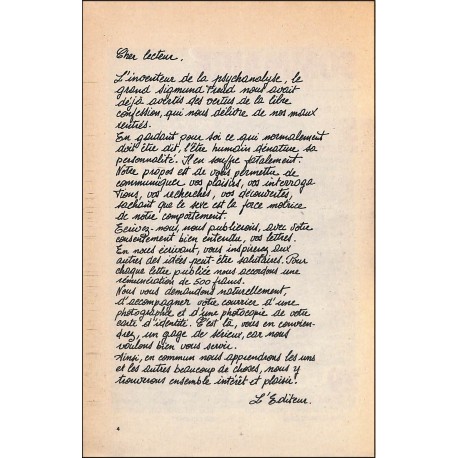 Cher lecteur,
L'inventeur de la psychanalyse, le
grand Sigmund Freud nous avait
déjà avertis des vertus de la libre
confession, qui nous délivre de nos maux
rentrés.
En gardant pour soi ce qui normalement
doit être dit, l'être humain dénature sa
personnalité. Il en souffre fatalement.
Notre propos est de vous permettre de
communiquer vos plaisirs, vos interroga
tions, vos recherches, vos découvertes,
sachant que le sexe est la force motrice
de notre comportement.
Ecrivez-nous, nous publierons, avec votre
consentement bien entendu, vos lettres.
En nous écrivant, vous inspirez aux
autres des idées peut-être salutaires. Pour
chaque lettre publiée nous accordons une
rémunération de 500 francs.
Nous vous demandons naturellement,
d'accompagner votre courrier d'une
photographie et d'une photocopie de votre
carte d'identité. C'est là, vous en convien-
drez, un gage de sérieux, car nous
voulons bien vous servir.
Ainsi, en commun nous apprendrons les uns
et les autres beaucoup de choses, nous y
trouverons ensemble intérêt et plaisir.
L'Editeur.
4